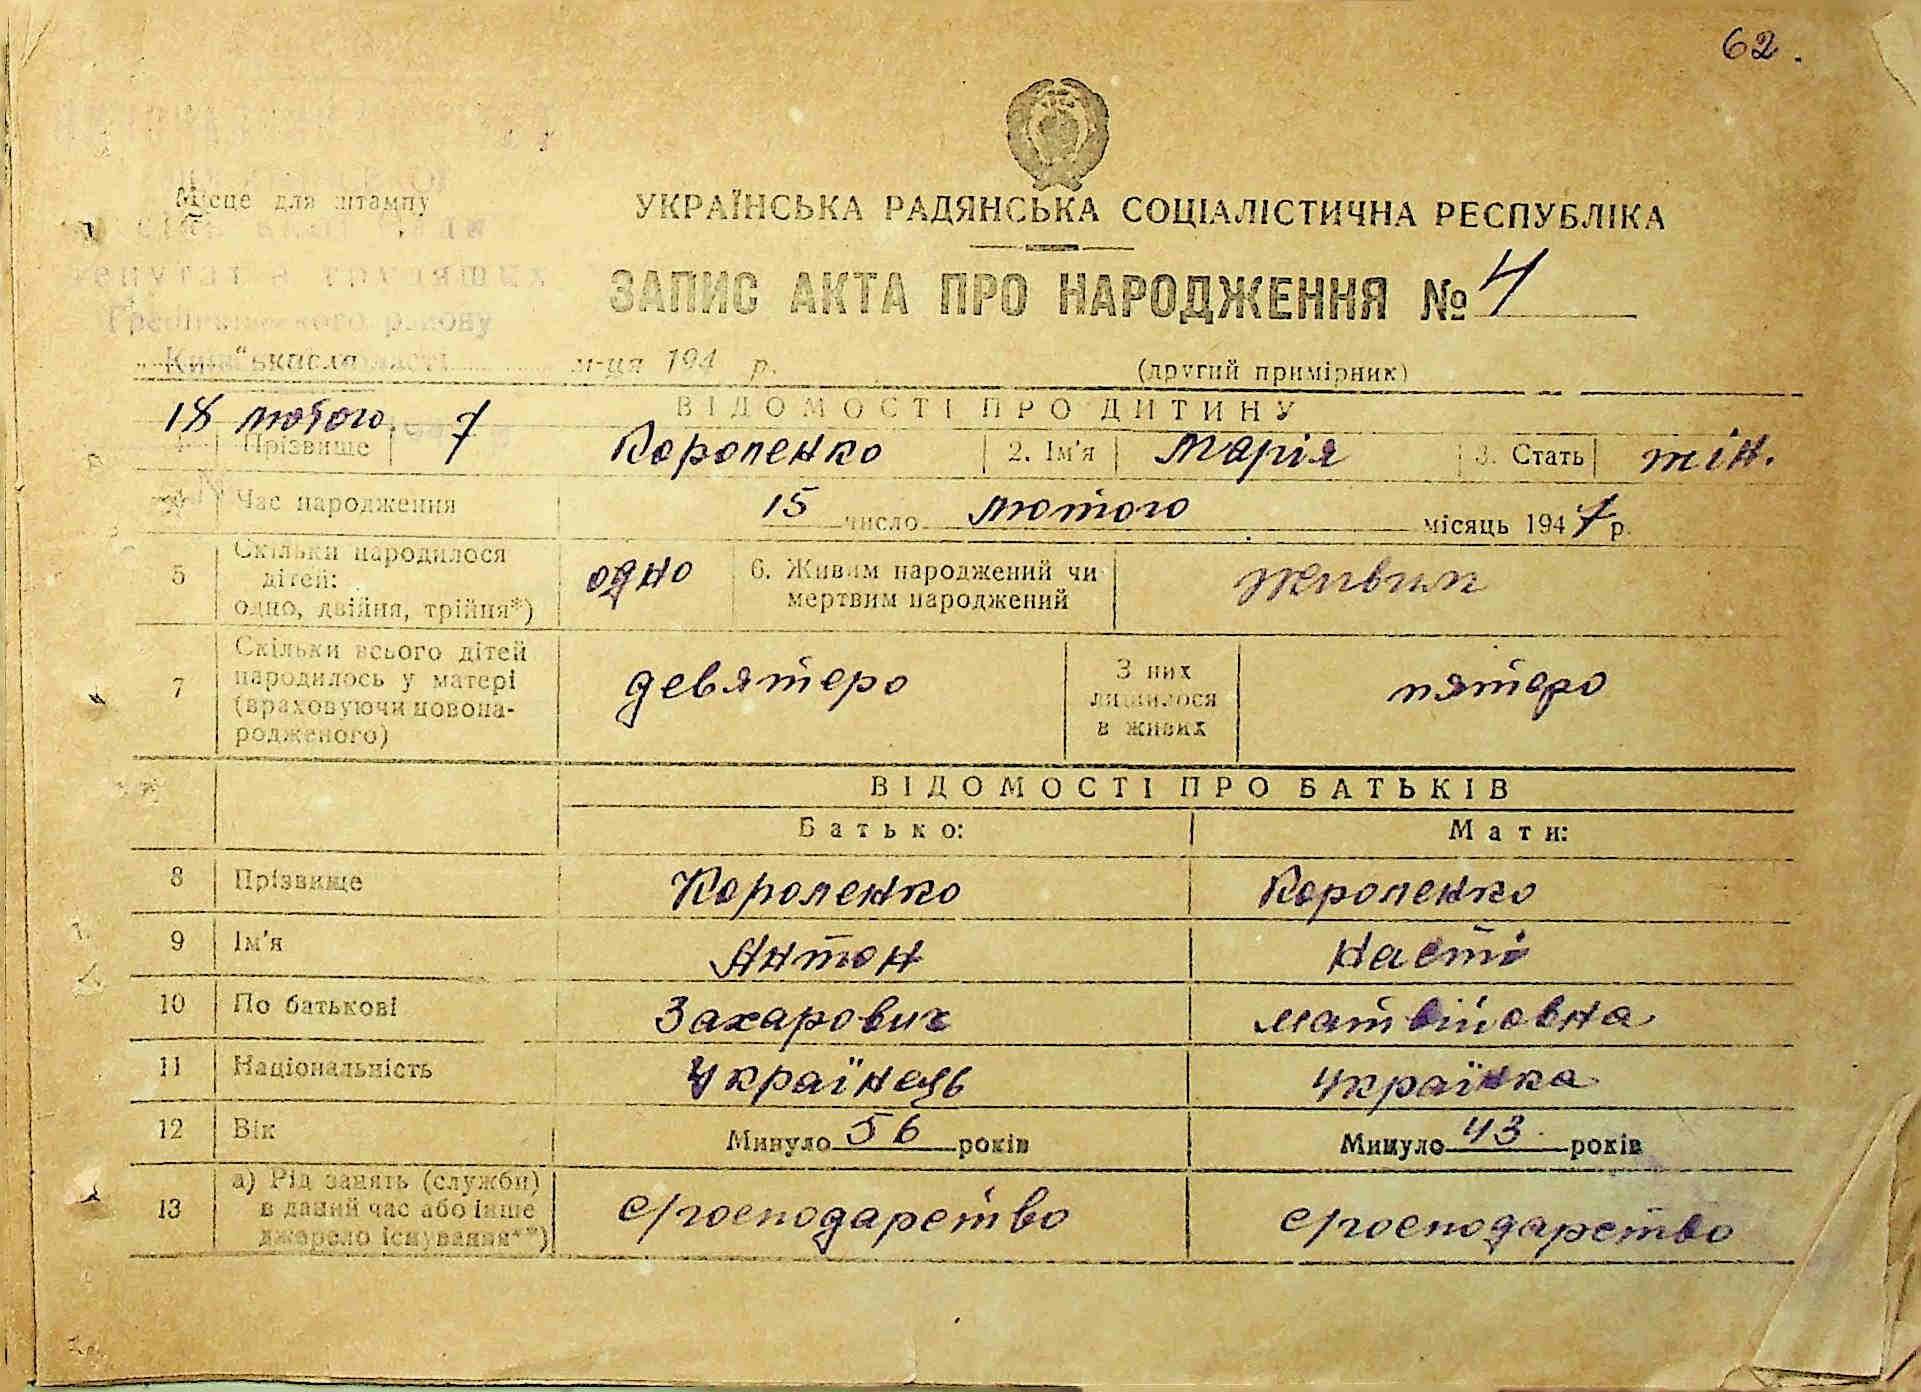 62.
Місце для штампу
УКРАЇНСЬКА РАДЯНСЬКА СОЦІАЛІСТИЧНА РЕСПУБЛІКА
ЗАПИС АКТА ПРО НАРОДЖЕННЯ № 4
м-ця 194 р.
(другий примірник)
18 лютого 7
ВІДОМОСТІ ПРО ДИТИНУ
Прізвище Короленко 2. Ім'я Марія 3. Стать жін.
Час народження 15 число лютого місяць 1947 р.
5 Скільки народилося дітей: одно, двійня, трійня*) одно 6. Живим народжений чи мертвим народжений живим
7 Скільки всього дітей народилось у матері (враховуючи новонародженого) девятеро З них лишилося в живих пятеро
ВІДОМОСТІ ПРО БАТЬКІВ
Батько: Мати:
8 Прізвище Короленко Короленко
9 Ім'я Антон Насті
10 По батькові Захарович Матвійовна
11 Національність Українець Українка
12 Вік Минуло 56 років Минуло 43 років
13 а) Рід занять (служби) в даний час або інше джерело існування**) с/господарство с/господарство